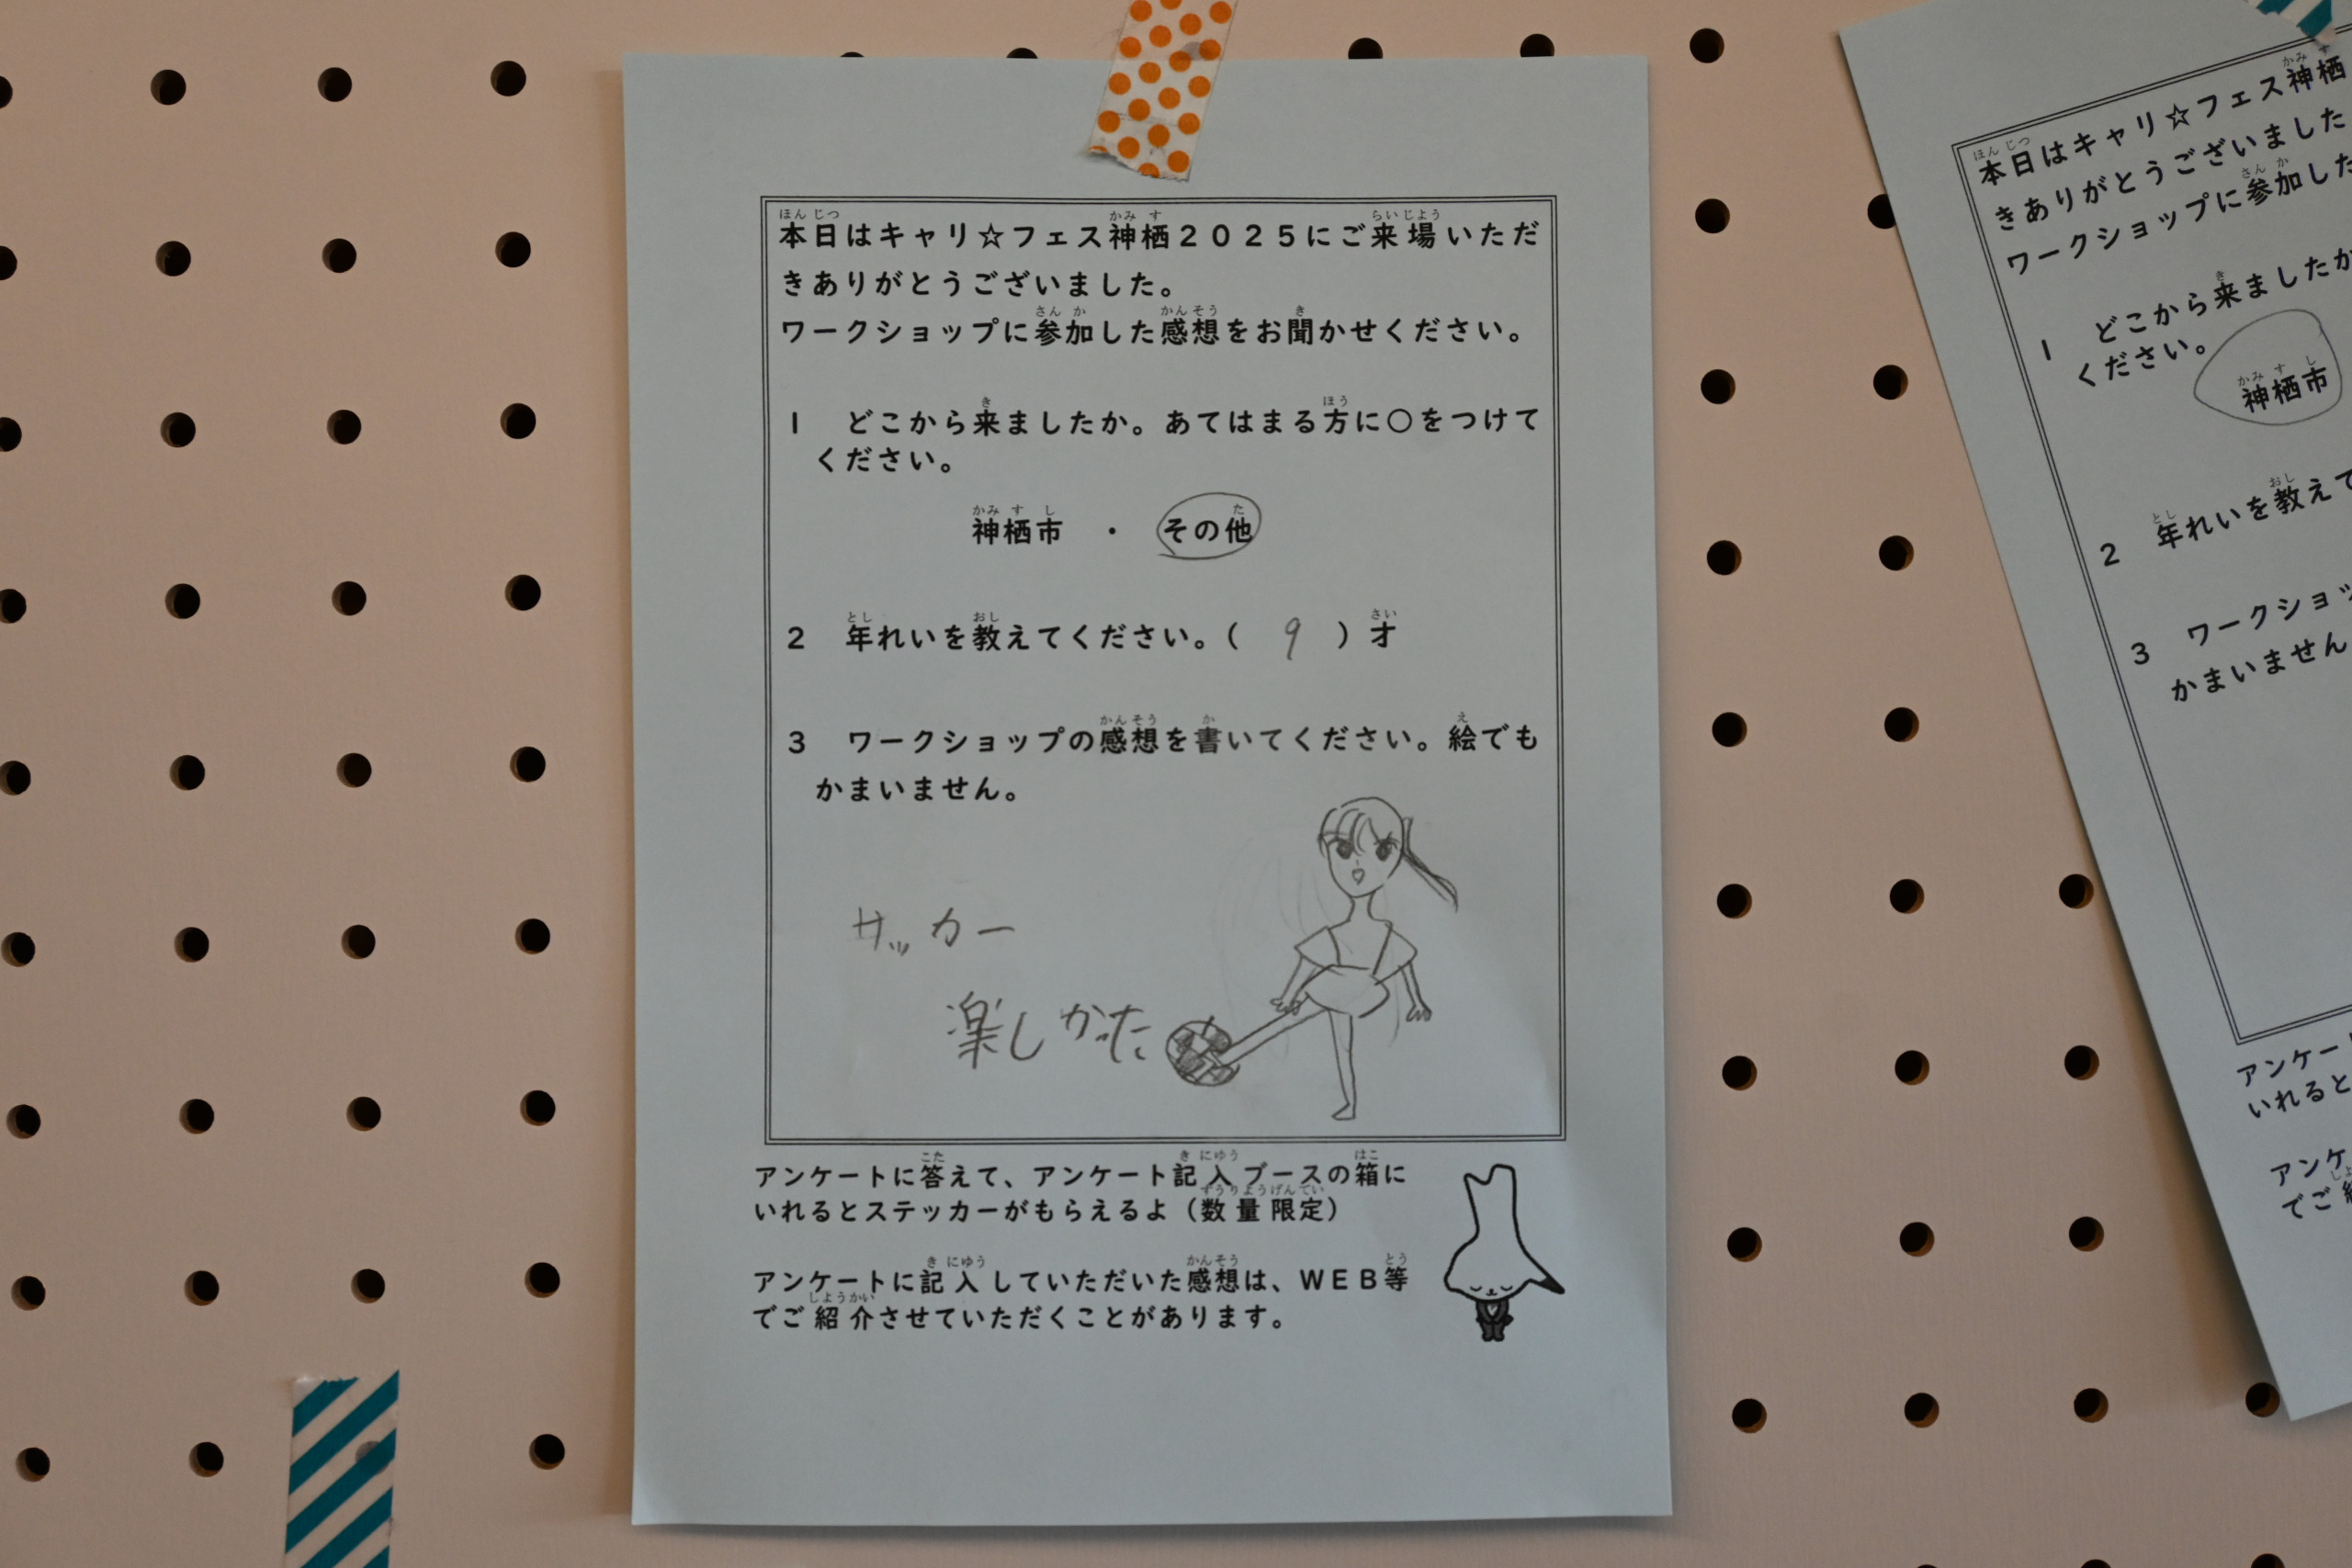 本日はキャリ☆フェス神栖2025にご来場いただ
きありがとうございました。
ワークショップに参加した感想をお聞かせください。
1 どこから来ましたか。あてはまる方に○をつけて
ください。
神栖市 ・ その他
2 年れいを教えてください。( 9 )才
3 ワークショップの感想を書いてください。絵でも
かまいません。
サッカー
楽しかった
アンケートに答えて、アンケート記入ブースの箱に
いれるとステッカーがもらえるよ（数量限定）
アンケートに記入していただいた感想は、WEB等
でご紹介させていただくことがあります。
本日はキャリ☆フェス神栖
きありがとうございました
ワークショップに参加した
1 どこから来ましたか
ください。
神栖市
2 年れいを教えて
3 ワークショッ
かまいません
アンケート
いれると
アンケ
でご紹